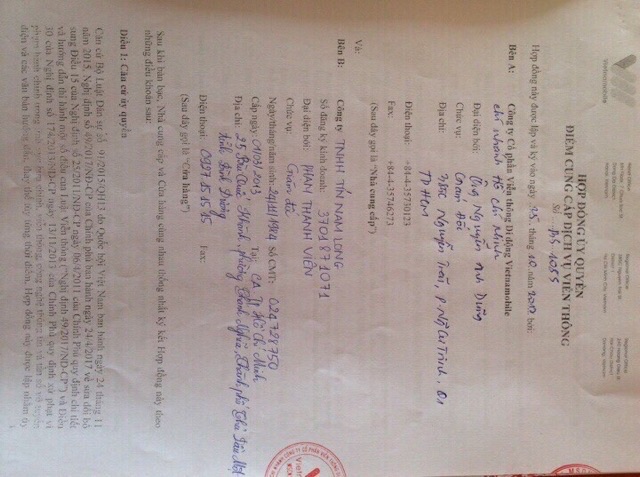 Vietnamobile
HỢP ĐỒNG ỦY QUYỀN
ĐIỂM CUNG CẤP DỊCH VỤ VIỄN THÔNG
Số: ĐG 1055
Hợp đồng này được lập và ký vào ngày tháng 10 năm 2017 bởi:
Bên A: Công ty Cổ phần Viễn thông Di động Vietnamobile
chi nhánh Hồ Chí Minh
Đại diện bởi: Ông Nguyễn Anh Dũng
Chức vụ: Giám Đốc
Địa chỉ: Nguyễn Trãi, P. Nguyễn Cư Trinh, Q1
TP HCM
Điện thoại: +84-4-35730123
Fax: +84-4-35746273
(Sau đây gọi là "Nhà cung cấp")
Và:
Bên B: Công ty TNHH TÍN NAM LONG
Số đăng ký kinh doanh: 3701871071
Đại diện bởi: PHAN THANH VIÊN
Chức vụ: Giám đốc
Ngày/tháng/năm sinh: 24/11/1984 Số CMT: 024728750
Cấp ngày: 09/03/2013 Tại: CA TP Hồ Chí Minh
Địa chỉ: 25 Bàu Khánh, phường Chánh Nghĩa, Thành phố Thủ Dầu Một
tỉnh Bình Dương
Điện thoại: 0927.15.15.15 Fax:
(Sau đây gọi là "Cửa hàng")
Sau khi bàn bạc, Nhà cung cấp và Cửa hàng cùng nhau thống nhất ký kết Hợp đồng này theo
những điều khoản sau:
Điều 1: Căn cứ ủy quyền
Căn cứ Bộ Luật Dân sự số 91/2015/QH13 do Quốc hội Việt Nam ban hành ngày 24 tháng 11
năm 2015, Nghị định số 49/2017/NĐ-CP của Chính phủ ban hành ngày 24/4/2017 về sửa đổi bổ
sung Điều 15 của Nghị định số 25/2011/NĐ-CP ngày 06/4/2011 của Chính phủ quy định chi tiết
và hướng dẫn thi hành một số điều của Luật Viễn thông ("Nghị định 49/2017/NĐ-CP") và Điều
30 của Nghị định số 174/2013/NĐ-CP ngày 13/11/2013 của Chính Phủ quy định xử phạt vi
phạm hành chính trong bưu chính, viễn thông, công nghệ thông tin và tần số vô tuyến
điện và các văn bản hướng dẫn, thay thế tùy từng thời điểm. Hợp đồng này được lập nhằm ủy